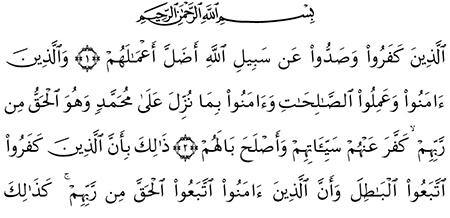 بِسْمِ اللَّهِ الرَّحْمَٰنِ الرَّحِيمِ
ٱلَّذِينَ كَفَرُوا۟ وَصَدُّوا۟ عَن سَبِيلِ ٱللَّهِ أَضَلَّ أَعْمَـٰلَهُمْ ﴿١﴾ وَٱلَّذِينَ
ءَامَنُوا۟ وَعَمِلُوا۟ ٱلصَّـٰلِحَـٰتِ وَءَامَنُوا۟ بِمَا نُزِّلَ عَلَىٰ مُحَمَّدٍ وَهُوَ ٱلْحَقُّ مِن
رَّبِّهِمْ ۙ كَفَّرَ عَنْهُمْ سَيِّـَٔاتِهِمْ وَأَصْلَحَ بَالَهُمْ ﴿٢﴾ ذَٰلِكَ بِأَنَّ ٱلَّذِينَ كَفَرُوا۟
ٱتَّبَعُوا۟ ٱلْبَـٰطِلَ وَأَنَّ ٱلَّذِينَ ءَامَنُوا۟ ٱتَّبَعُوا۟ ٱلْحَقَّ مِن رَّبِّهِمْ ۚ كَذَٰلِكَ